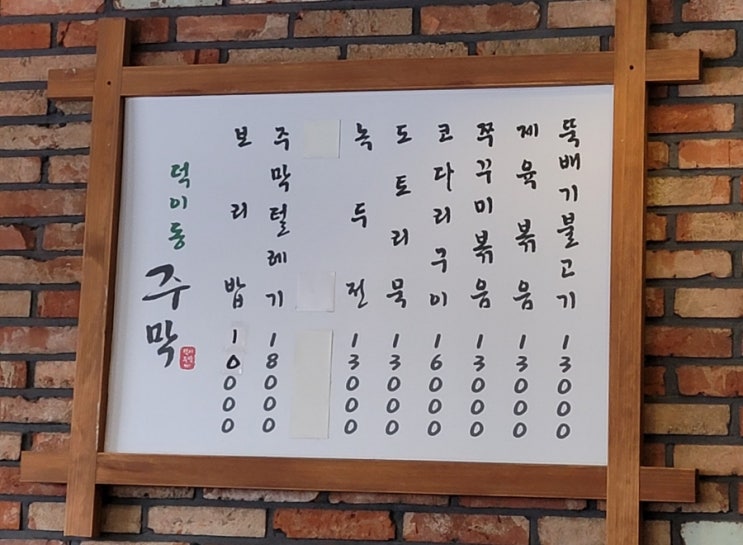 뚝배기불고기 13000
제육볶음 13000
쭈꾸미볶음 13000
코다리구이 16000
도토리묵 13000
녹두전 13000
주막털레기 18000
보리밥 10000
덕이동
주막